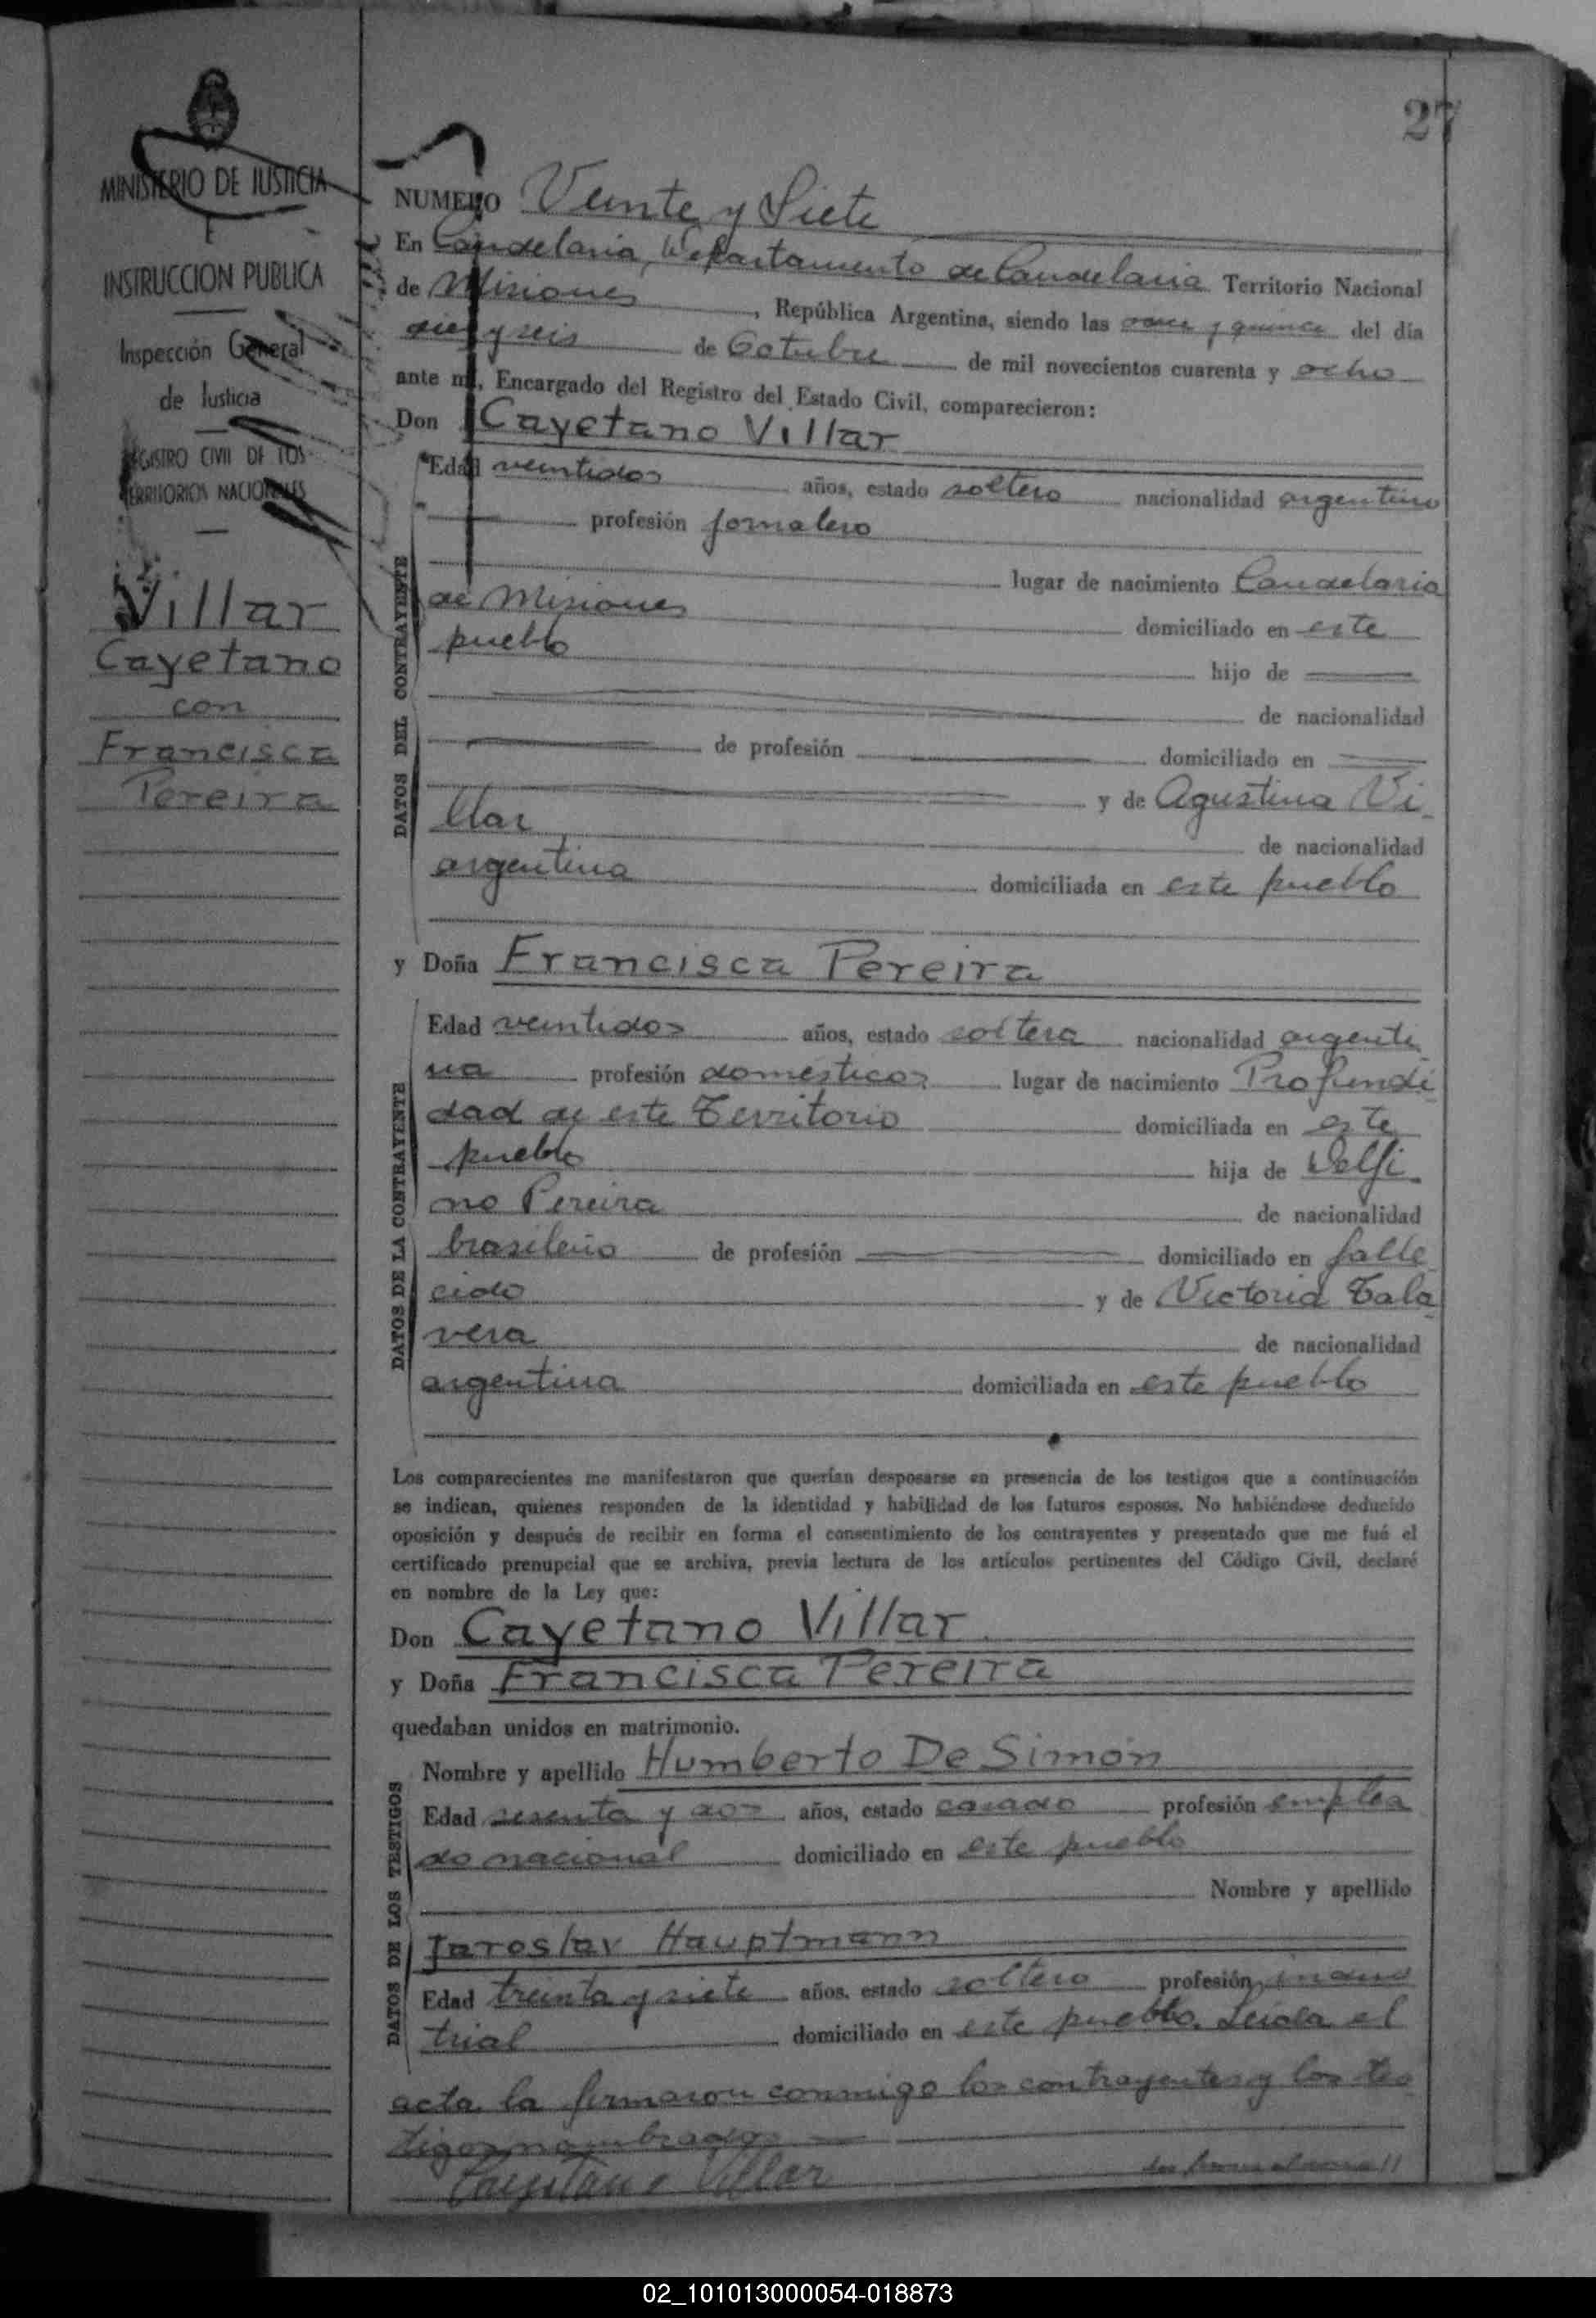 27
MINISTERIO DE JUSTICIA
E
INSTRUCCION PUBLICA
Inspección General
de Justicia
REGISTRO CIVIL DE LOS
TERRITORIOS NACIONALES
Villar
Cayetano
con
Francisca
Pereira
NUMERO Veinte y Siete
En Candelaria, Departamento de Candelaria Territorio Nacional
de Misiones, República Argentina, siendo las once y quince del día
diez y seis de Octubre de mil novecientos cuarenta y ocho
ante mí, Encargado del Registro del Estado Civil, comparecieron:
Don Cayetano Villar
DATOS DEL CONTRAYENTE
Edad veintidos años, estado soltero nacionalidad argentino
profesión jornalero
lugar de nacimiento Candelaria
de Misiones domiciliado en este
pueblo hijo de
de nacionalidad
de profesión domiciliado en
y de Agustina Vi
llar de nacionalidad
argentina domiciliada en este pueblo
y Doña Francisca Pereira
DATOS DE LA CONTRAYENTE
Edad veintidos años, estado soltera nacionalidad argenti
na profesión domesticos lugar de nacimiento Profundi
dad de este Territorio domiciliada en este
pueblo hija de Delfi
no Pereira de nacionalidad
brasileño de profesión domiciliado en falle
cido y de Victoria Tala
vera de nacionalidad
argentina domiciliada en este pueblo
Los comparecientes me manifestaron que querían desposarse en presencia de los testigos que a continuación
se indican, quienes responden de la identidad y habilidad de los futuros esposos. No habiéndose deducido
oposición y después de recibir en forma el consentimiento de los contrayentes y presentado que me fué el
certificado prenupcial que se archiva, previa lectura de los artículos pertinentes del Código Civil, declaré
en nombre de la Ley que:
Don Cayetano Villar
y Doña Francisca Pereira
quedaban unidos en matrimonio.
DATOS DE LOS TESTIGOS
Nombre y apellido Humberto De Simon
Edad sesenta y dos años, estado casado profesión emplea
do nacional domiciliado en este pueblo
Nombre y apellido
Jaroslav Hauptmann
Edad treinta y siete años, estado soltero profesión indus
trial domiciliado en este pueblo. Leida el
acta la firmaron conmigo los contrayentes y los tes
tigos nombrados
Cayetano Villar
02_101013000054-018873